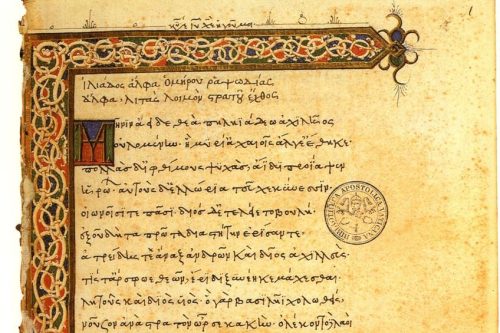 ἰλιάδος ἄλφα ὁμήρου ῥαψωδίας
ἄλφα λιτὰς λοιμὸν στρατοῦ ἔχθος
Μῆνιν ἄειδε θεὰ πηληϊάδεω ἀχιλῆος
οὐλομένην· ἣ μυρί' ἀχαιοῖς ἄλγε' ἔθηκε·
πολλὰς δ' ἰφθίμους ψυχὰς ἄϊδι προΐαψεν
ἡρώων· αὐτοὺς δὲ ἑλώρια τεῦχε κύνεσσιν·
οἰωνοῖσί τε πᾶσι· διὸς δ' ἐτελείετο βουλή·
ἐξ οὗ δὴ τὰ πρῶτα διαστήτην ἐρίσαντε·
ἀτρείδης τε ἄναξ ἀνδρῶν καὶ δῖος ἀχιλλεύς·
τίς τάρ σφωε θεῶν, ἔριδι ξυνέηκε μάχεσθαι·
λητοῦς καὶ διὸς υἱός· ὁ γὰρ βασιλῆϊ χολωθείς,
νοῦσον ἀνὰ στρατὸν ὦρσε κακήν· ὀλέκοντο δὲ λαοί·
BIBLIOTHECA APOSTOLICA VATICANA